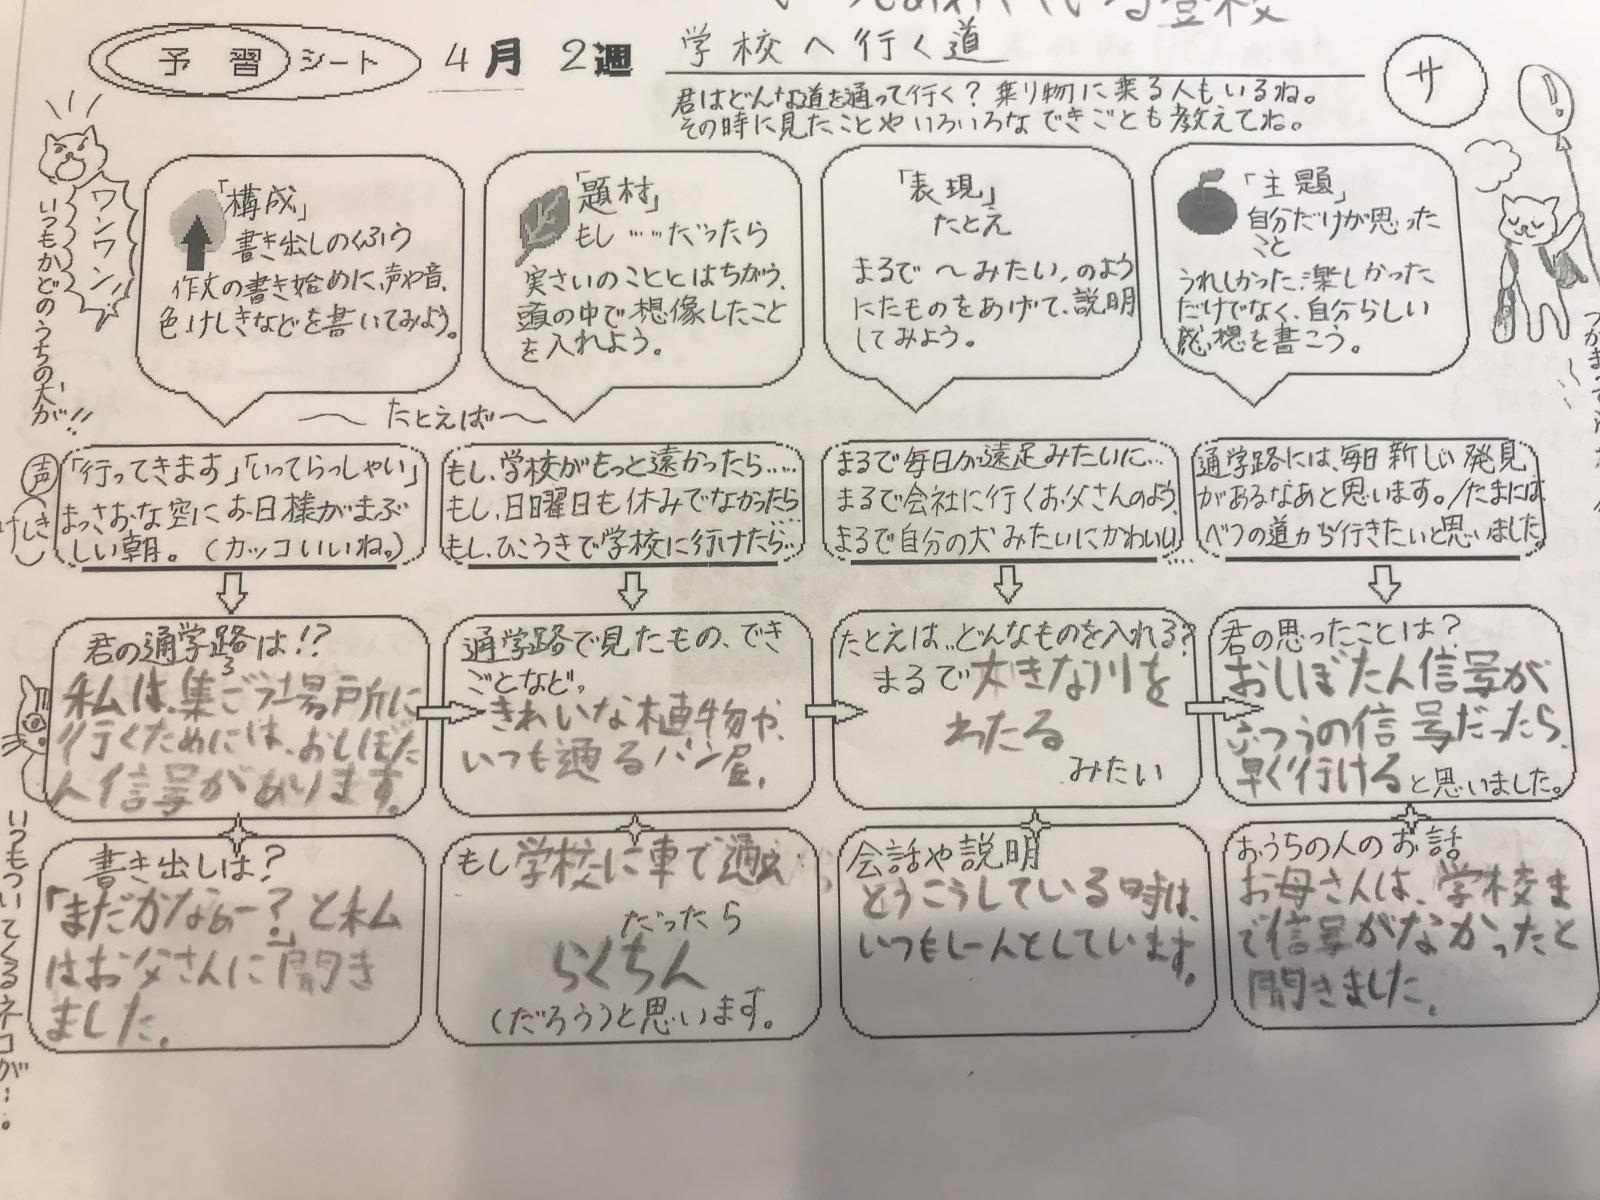 登校
予習シート 4月 2週 学校へ行く道
サ
君はどんな道を通って行く？乗り物に乗る人もいるね。
その時に見たことやいろいろなできごとも教えてね。
ワンワン!
いつもかどのうちの犬が!!
「構成」
書き出しのくふう
作文の書き始めに、声や音、
色、けしきなどを書いてみよう。
「題材」
もし……だったら
実さいのこととはちがう、
頭の中で想像したこと
を入れよう。
「表現」
たとえ
まるで～みたい、のよう
にたものをあげて、説明
してみよう。
「主題」
自分だけが思った
こと
うれしかった、楽しかった
だけでなく、自分らしい
感想を書こう。
～たとえば～
声
けしき
「行ってきます」「いってらっしゃい」
まっさおな空にお日様がまぶ
しい朝。（カッコいいね。）
もし、学校がもっと遠かったら……
もし、日曜日も休みでなかったら……
もし、ひこうきで学校に行けたら…
まるで毎日が遠足みたいに…
まるで会社に行くお父さんのよう、
まるで自分の犬みたいにかわいい….
通学路には、毎日新しい発見
があるなあと思います。/たまには
べつの道から行きたいと思いました
君の通学路は!?
私は、集ごう場所に
行くためには、おしぼた
ん信号があります。
通学路で見たもの、でき
ごとなど。
きれいな植物や、
いつも通るパン屋。
たとえは、どんなものを入れる？
まるで大きな川を
わたる
みたい
君の思ったことは？
おしぼたん信号が
ふつうの信号だったら、
早く行けると思いました。
書き出しは？
「まだかなぁー？」と私
はお父さんに聞き
ました。
もし学校に車で通え
だったら
らくちん
（だろう）と思います。
会話や説明
とうこうしている時は、
いつもしーんとしています。
おうちの人のお話
お母さんは、学校ま
で信号がなかったと
聞きました。
いつもついてくるネコが…。